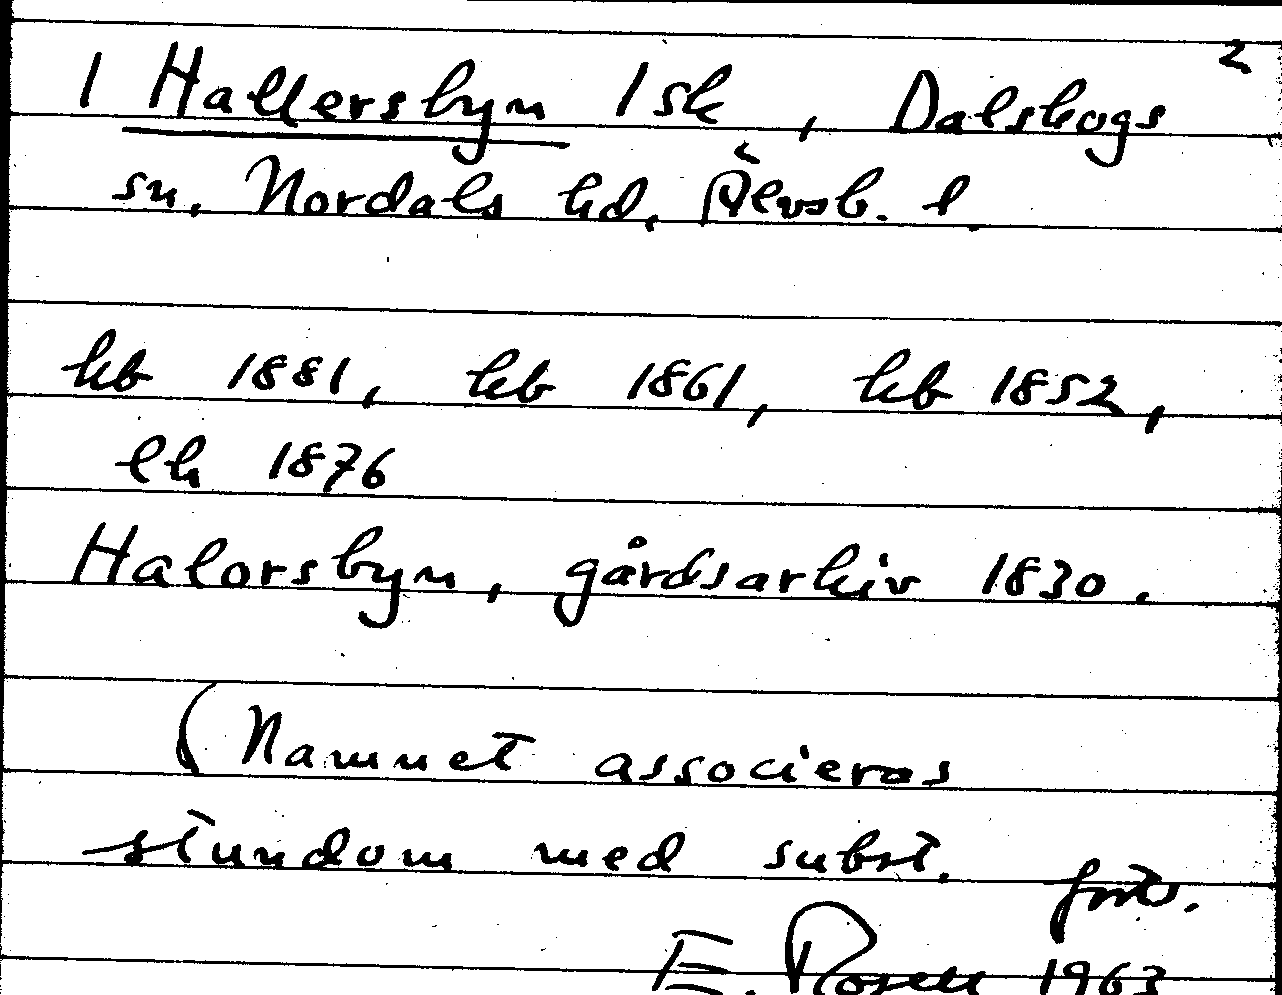 2
1 Hallersbyn 1 sk, Dalskogs
sn, Nordals hd, Älvsb. l.
kb 1881, kb 1861, kb 1852,
ek 1876
Halorsbyn, gårdsarkiv 1830.
(Namnet associeras
stundom med subst.
forts.
E. Rosell 1963